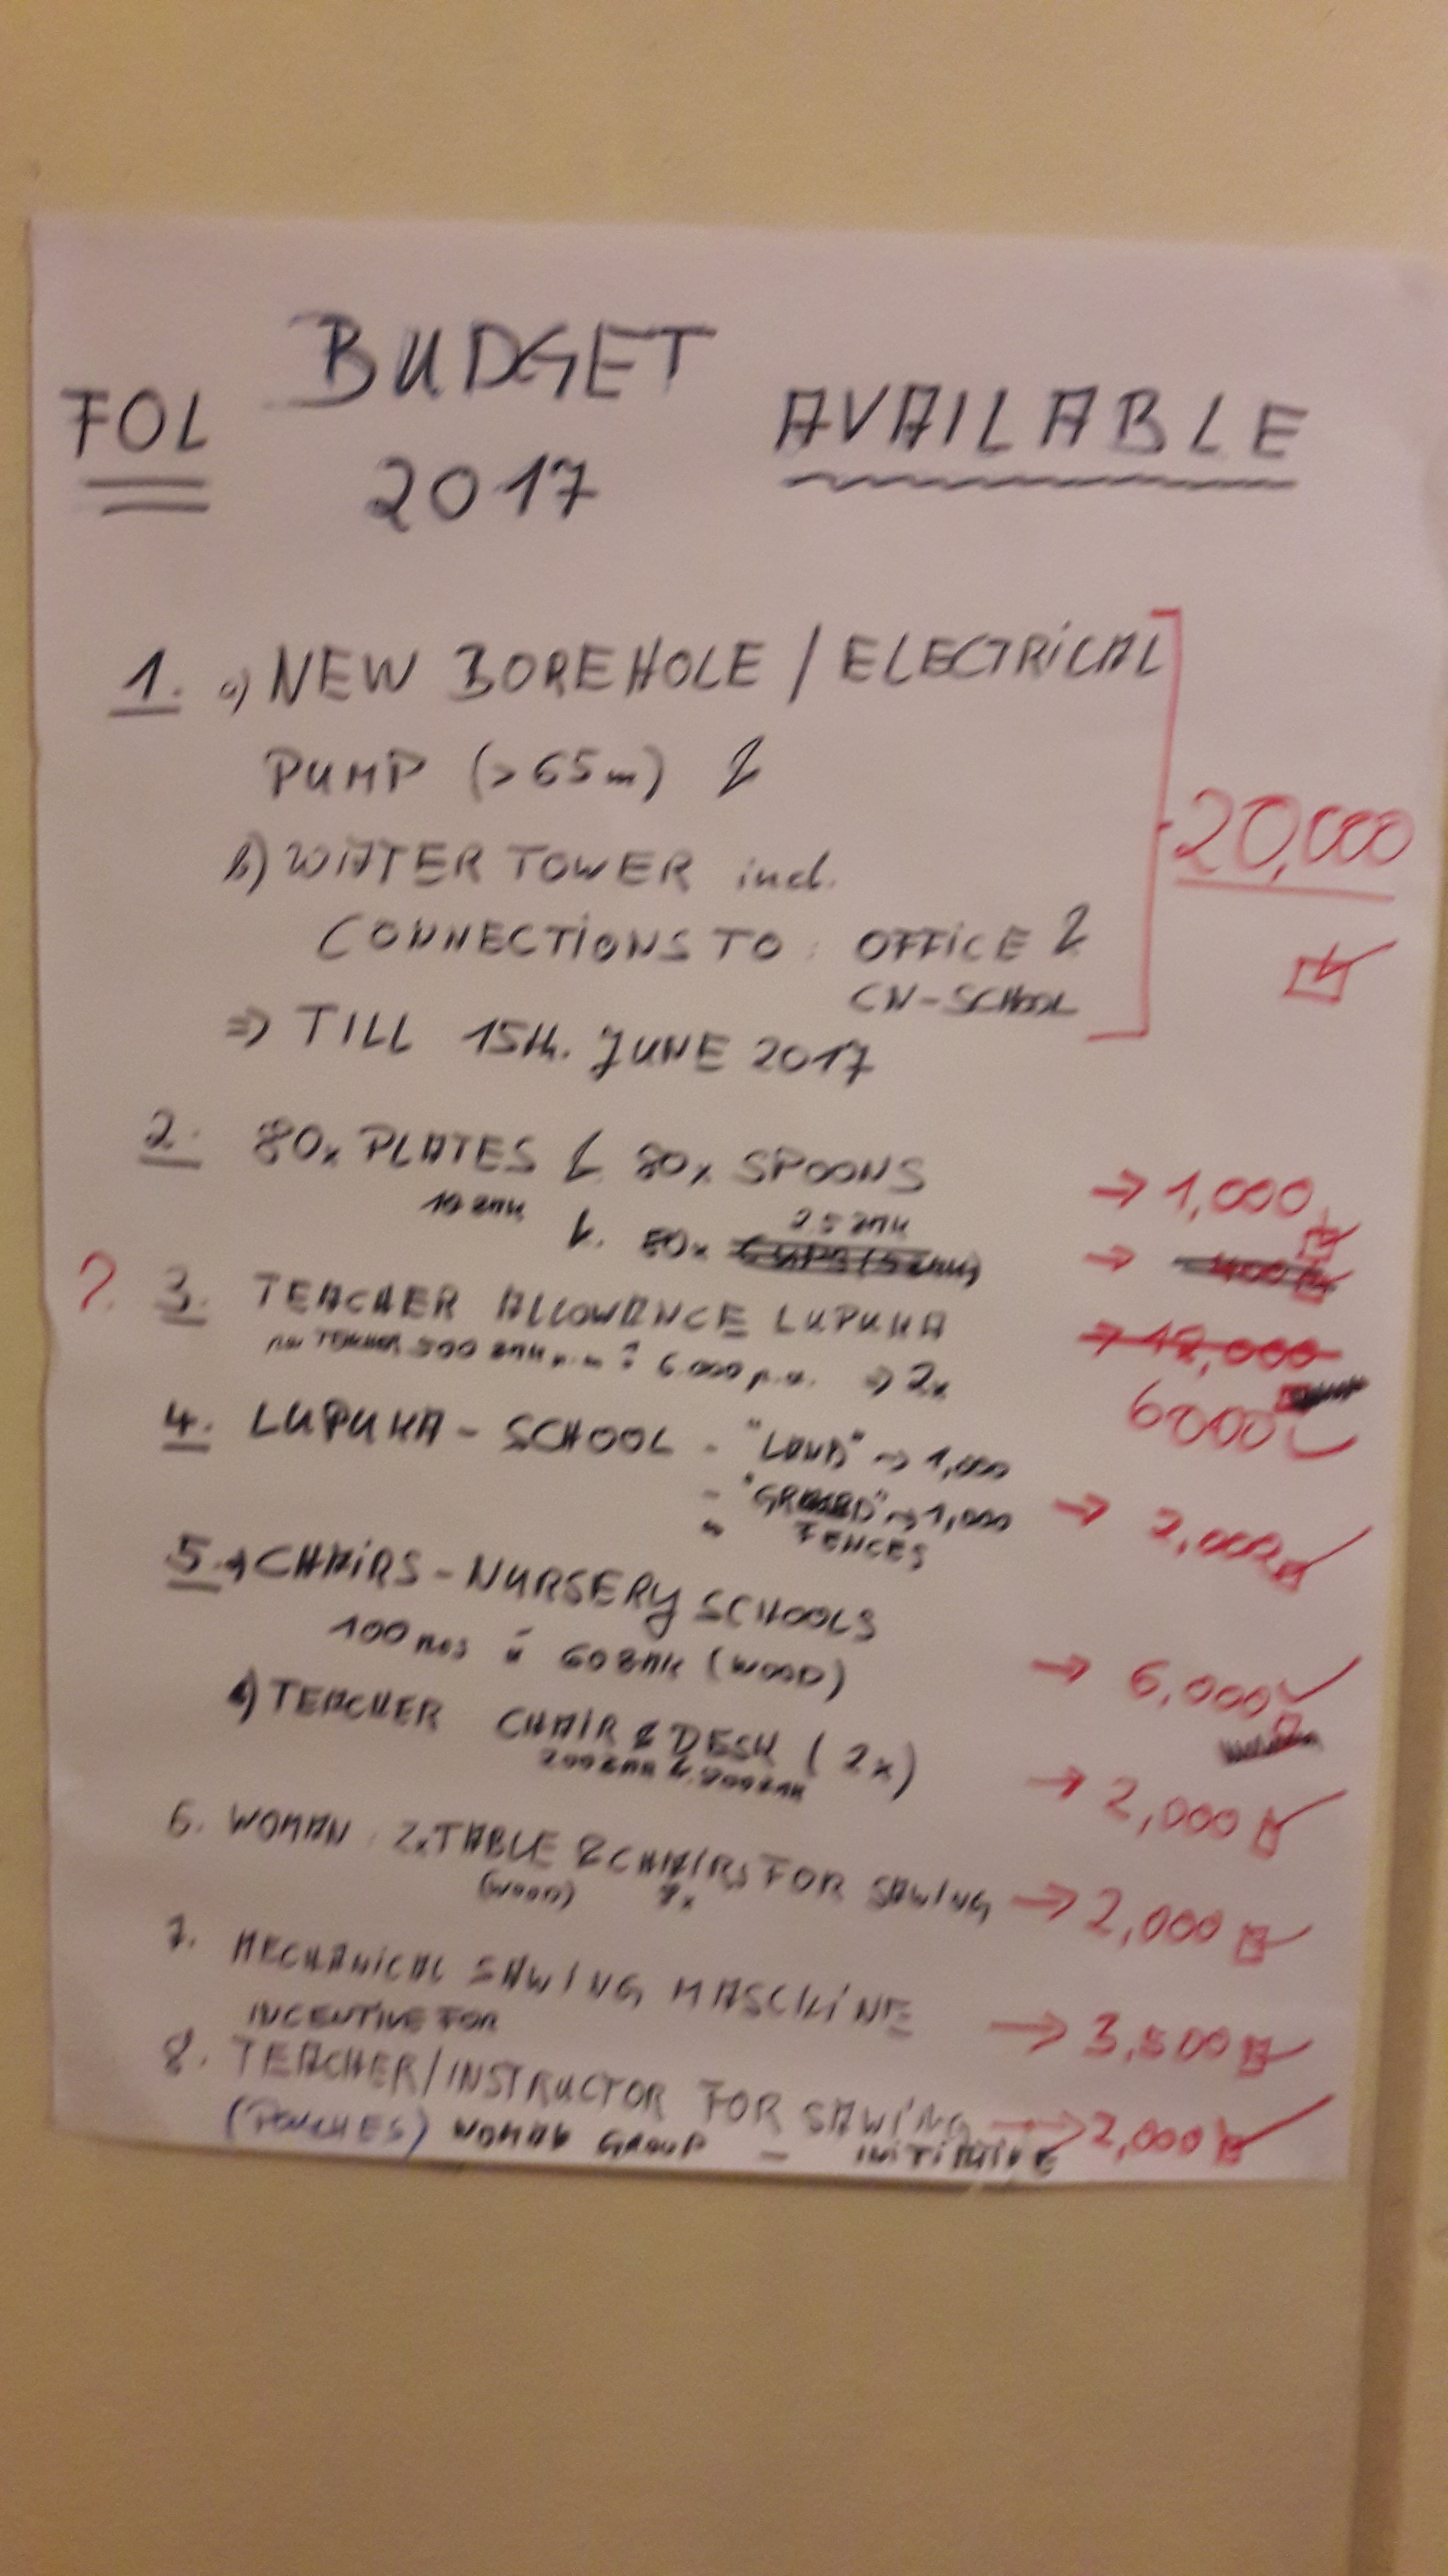 BUDGET
FOL 2017 AVAILABLE
1. a) NEW BOREHOLE / ELECTRICAL
PUMP (>65m) &
20,000
b) WATER TOWER incl.
CONNECTIONS TO: OFFICE &
CN-SCHOOL
=> TILL 15th. JUNE 2017
2. 80x PLATES & 80x SPOONS → 1,000
10 ZMK 2.5 ZMK
&. 80x CUPS (5 ZMK) → 400
? 3. TEACHER ALLOWANCE LUPUKA → 12,000
TEACHER 500 ZMK p.m = 6.000 p.a. => 2x
6000
4. LUPUKA - SCHOOL - "LAND" → 1,000
- "GROUND" → 1,000 → 2,000
- FENCES
5. a) CHAIRS - NURSERY SCHOOLS
100 nos à 60 ZMK (WOOD) → 6,000
b) TEACHER CHAIR & DESK (2x) → 2,000
200 ZMK & 800 ZMK
6. WOMAN: 2x TABLE & CHAIRS FOR SAWING → 2,000
(WOOD) 8x
7. MECHANICAL SAWING MASCHINE → 3,500
INCENTIVE FOR
8. TEACHER/INSTRUCTOR FOR SAWING → 2,000
WOMAN GROUP - INITIATIVE